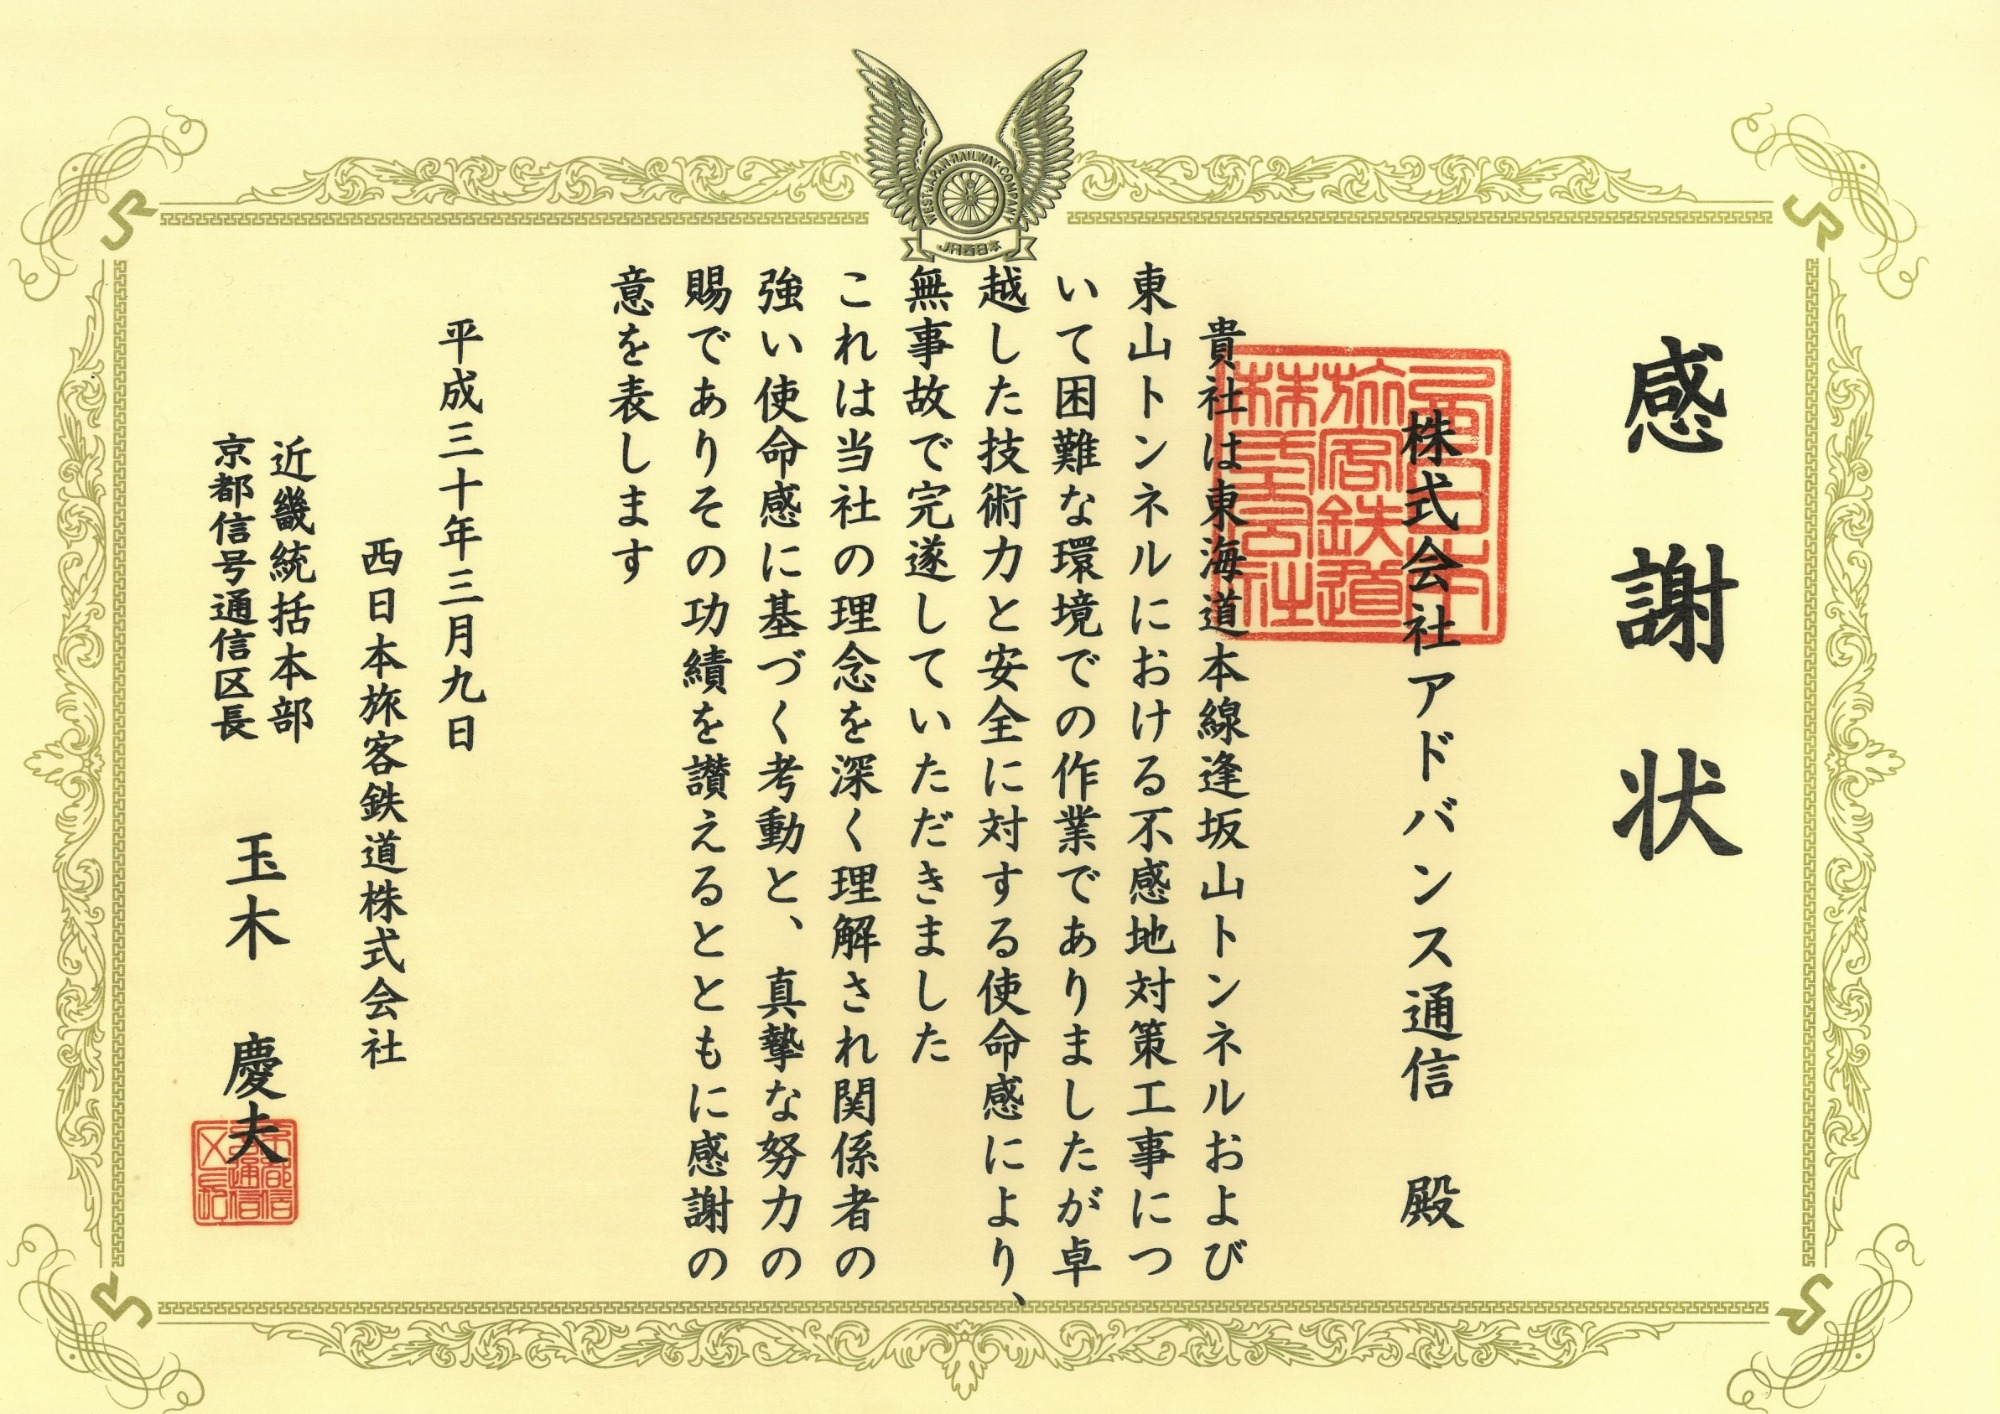 WEST JAPAN RAILWAY COMPANY
JR西日本
感謝状
株式会社アドバンス通信 殿
西日本
旅客鉄道
株式会社
貴社は東海道本線逢坂山トンネルおよび
東山トンネルにおける不感地対策工事につ
いて困難な環境での作業でありましたが卓
越した技術力と安全に対する使命感により、
無事故で完遂していただきました
これは当社の理念を深く理解され関係者の
強い使命感に基づく考動と、真摯な努力の
賜でありその功績を讃えるとともに感謝の
意を表します
平成三十年三月九日
西日本旅客鉄道株式会社
近畿統括本部
京都信号通信区長 玉木 慶夫